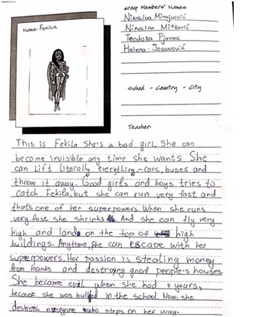 Group Members' Names:
Name: Fekila
Nikolina
Nikolina Mitrović
Teodora Pjevac
Helena Jovanović
School - Country - City
Teacher:
This is Fekila She's a bad girl. She can
become invisible any time she wants She
can lift literally everything - cars, buses and
throw it away. Good girls and boys tries to
catch Fekila, but she can run very fast and
that's one of her superpowers When she runs
very fast she shrinks. And she can fly very
high and land on the top of high
buildings. Anytime, she can escape with her
superpowers. Her passion is stealing money
from banks and destroying good people's houses
She became evil when she had years,
because she was in the school. Now, she
destroys who steps on her way.